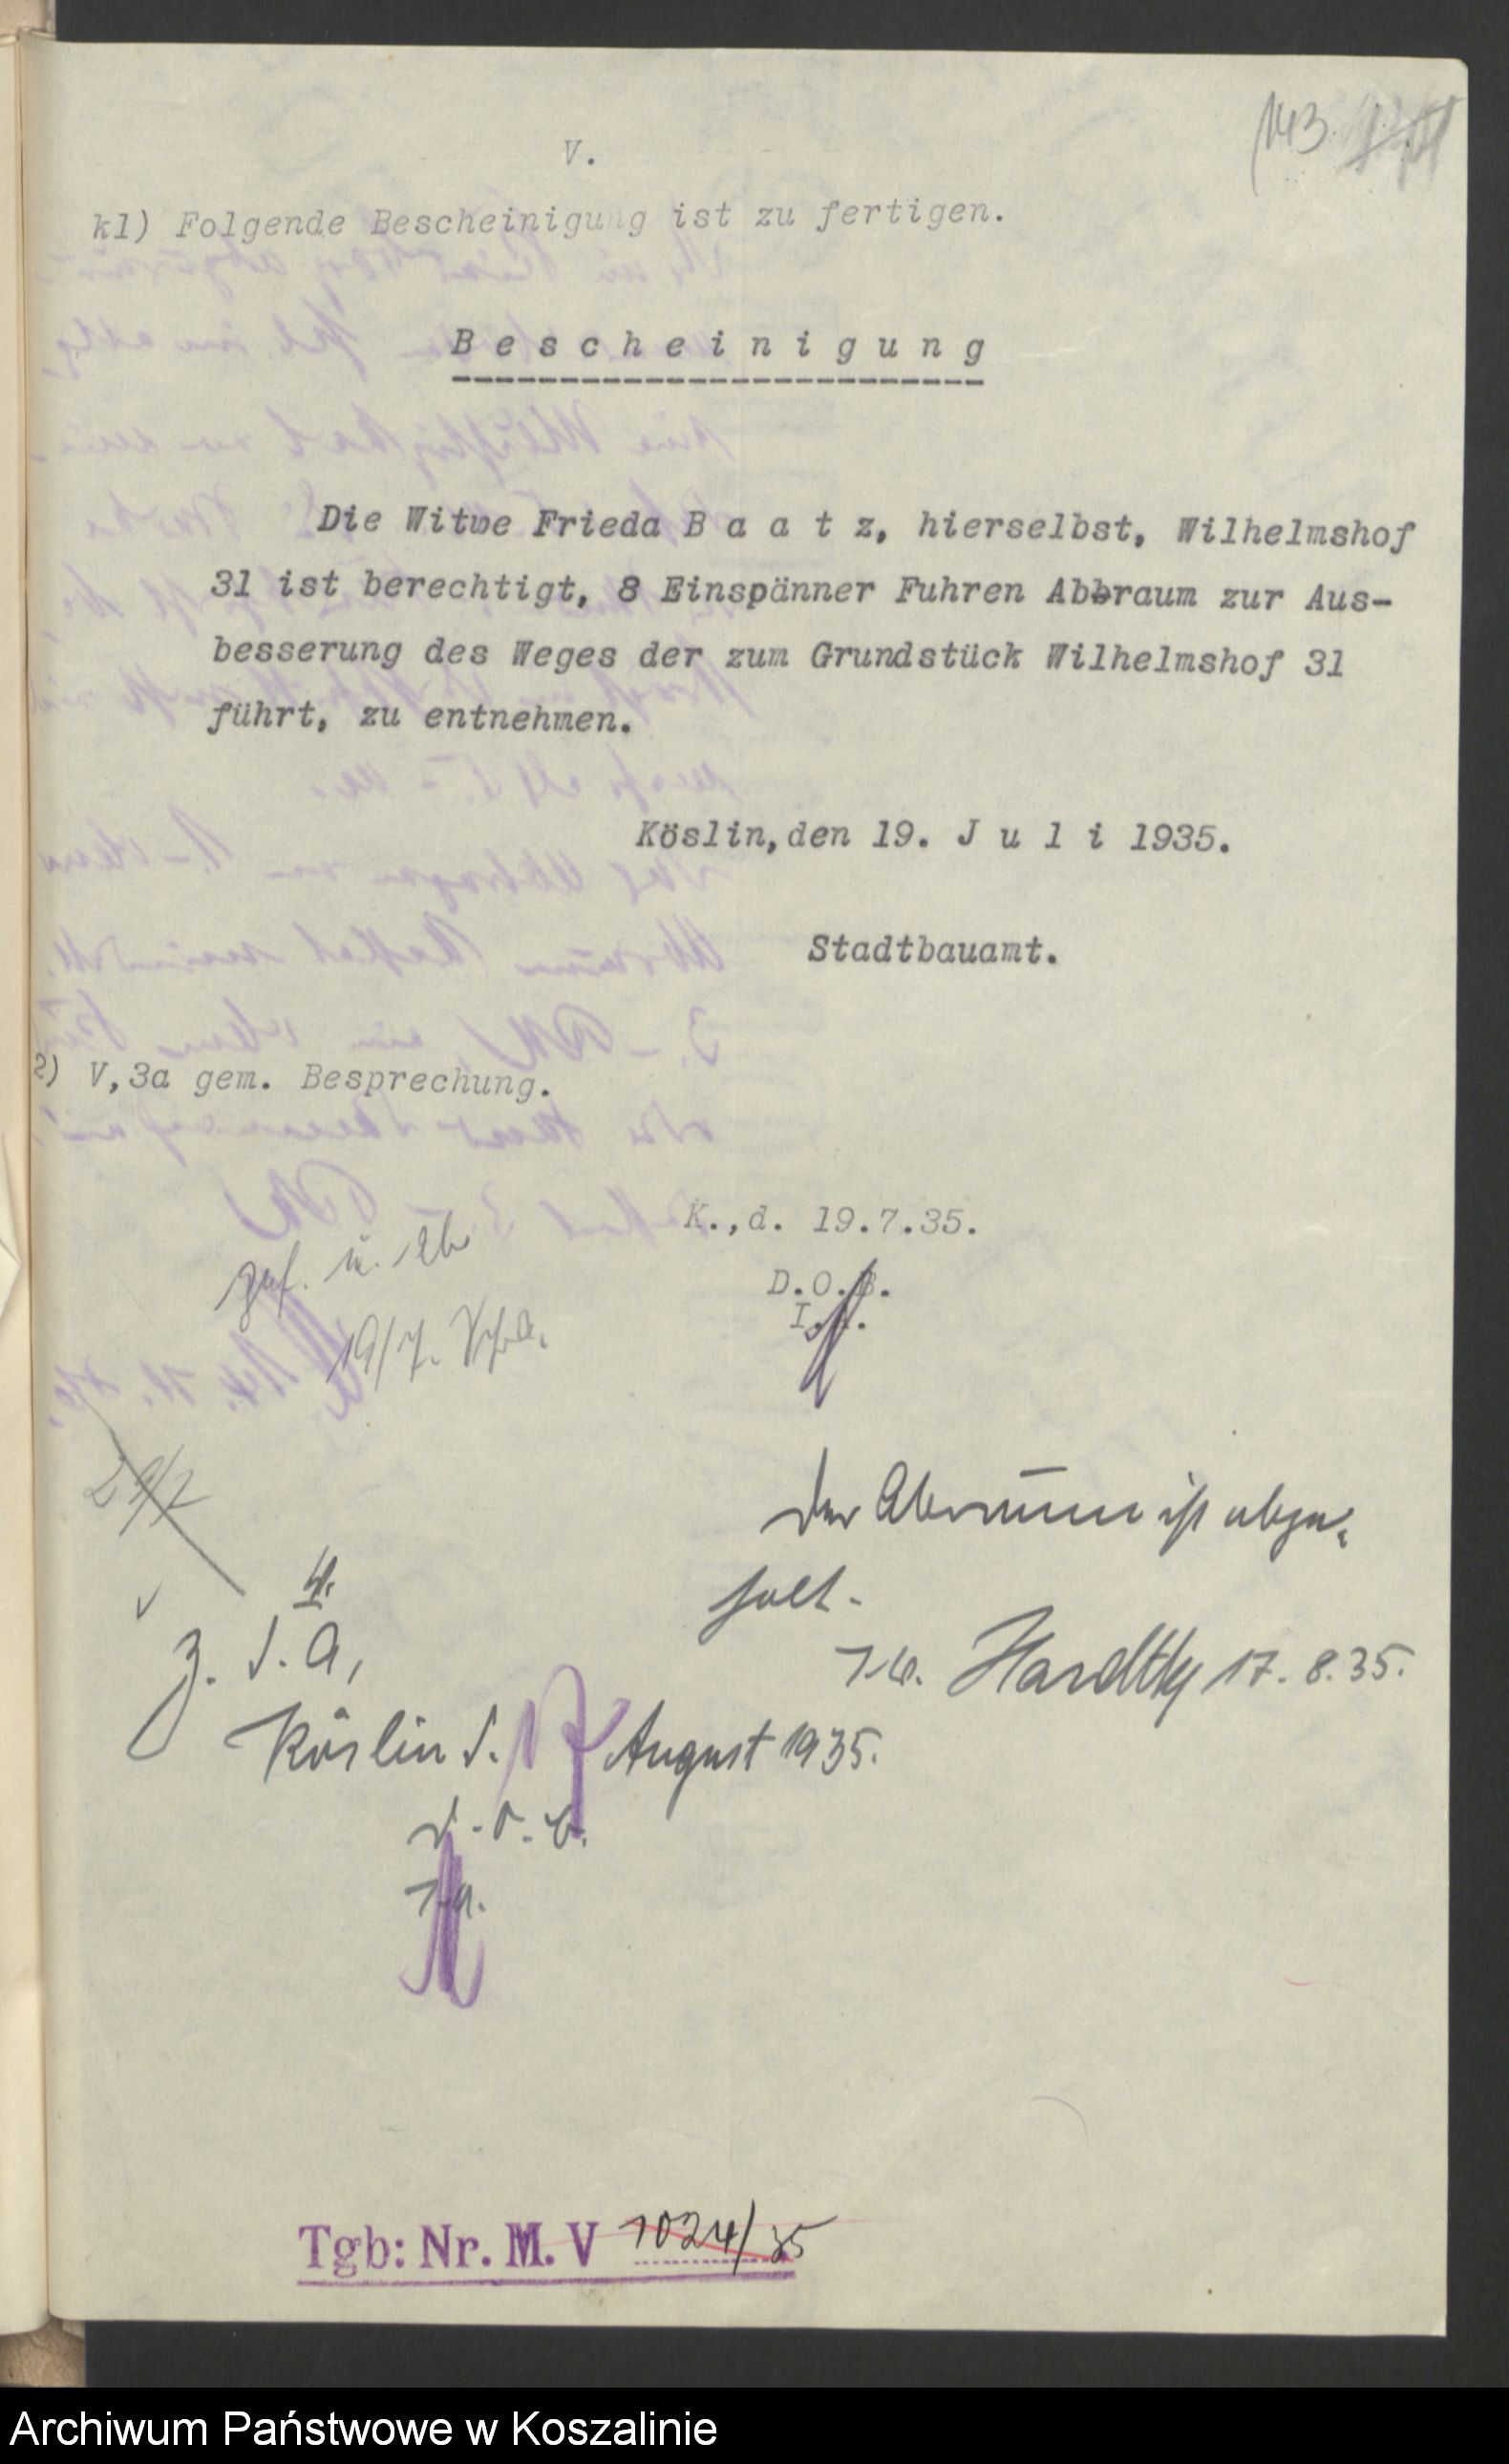 143
V.
k1) Folgende Bescheinigung ist zu fertigen.
B e s c h e i n i g u n g
Die Witwe Frieda B a a t z, hierselbst, Wilhelmshof
31 ist berechtigt, 8 Einspänner Fuhren Abbraum zur Aus-
besserung des Weges der zum Grundstück Wilhelmshof 31
führt, zu entnehmen.
Köslin, den 19. J u l i 1935.
Stadtbauamt.
2) V,3a gem. Besprechung.
K.,d. 19.7.35.
D.O.B.
I.A.
gef. u. ab
19/7.
Der Abraum ist abge-
holt.
Hardtke 17.8.35.
z. d. A.
Köslin d. 17 August 1935.
D.O.B.
I.A.
Tgb: Nr. M. V 1024/35
Archiwum Państwowe w Koszalinie